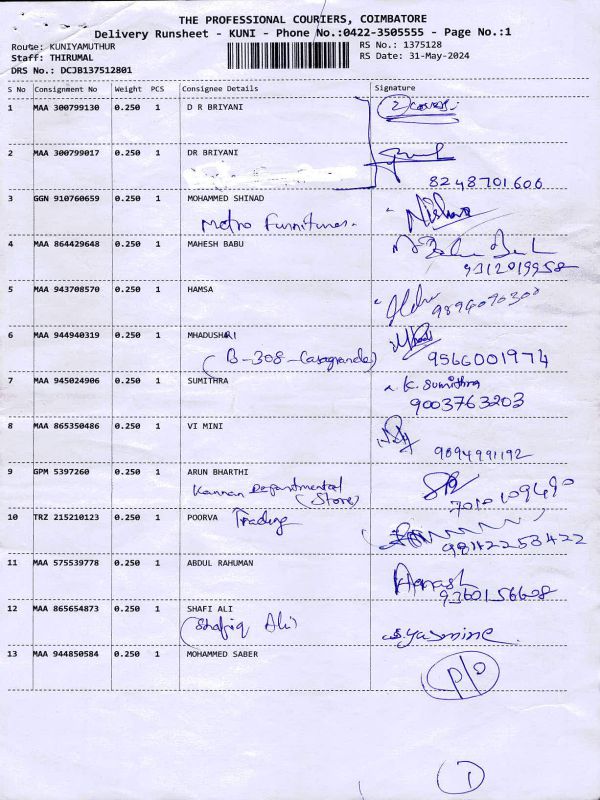 THE PROFESSIONAL COURIERS, COIMBATORE
Delivery Runsheet - KUNI - Phone No.:0422-3505555 - Page No.:1
Route: KUNIYAMUTHUR RS No.: 1375128
Staff: THIRUMAL RS Date: 31-May-2024
DRS No.: DCJB137512801
S No Consignment No Weight PCS Consignee Details Signature
1 MAA 300799130 0.250 1 D R BRIYANI 2 covers
2 MAA 300799017 0.250 1 DR BRIYANI
8248701606
3 GGN 910760659 0.250 1 MOHAMMED SHINAD
Metro Furnitures.
4 MAA 864429648 0.250 1 MAHESH BABU
9312019958
5 MAA 943708570 0.250 1 HAMSA
6 MAA 944940319 0.250 1 MHADUSHRI
(B-308-Casagrande) 9566001974
7 MAA 945024906 0.250 1 SUMITHRA K. Sumithra
9003763203
8 MAA 865350486 0.250 1 VI MINI
9094991192
9 GPM 5397260 0.250 1 ARUN BHARTHI
Kannan Departmental
(Store)
10 TRZ 215210123 0.250 1 POORVA Trading
11 MAA 575539778 0.250 1 ABDUL RAHUMAN
12 MAA 865654873 0.250 1 SHAFI ALI
(Shafiq Ali) S.yasmine.
13 MAA 944850584 0.250 1 MOHAMMED SABER P/O
1